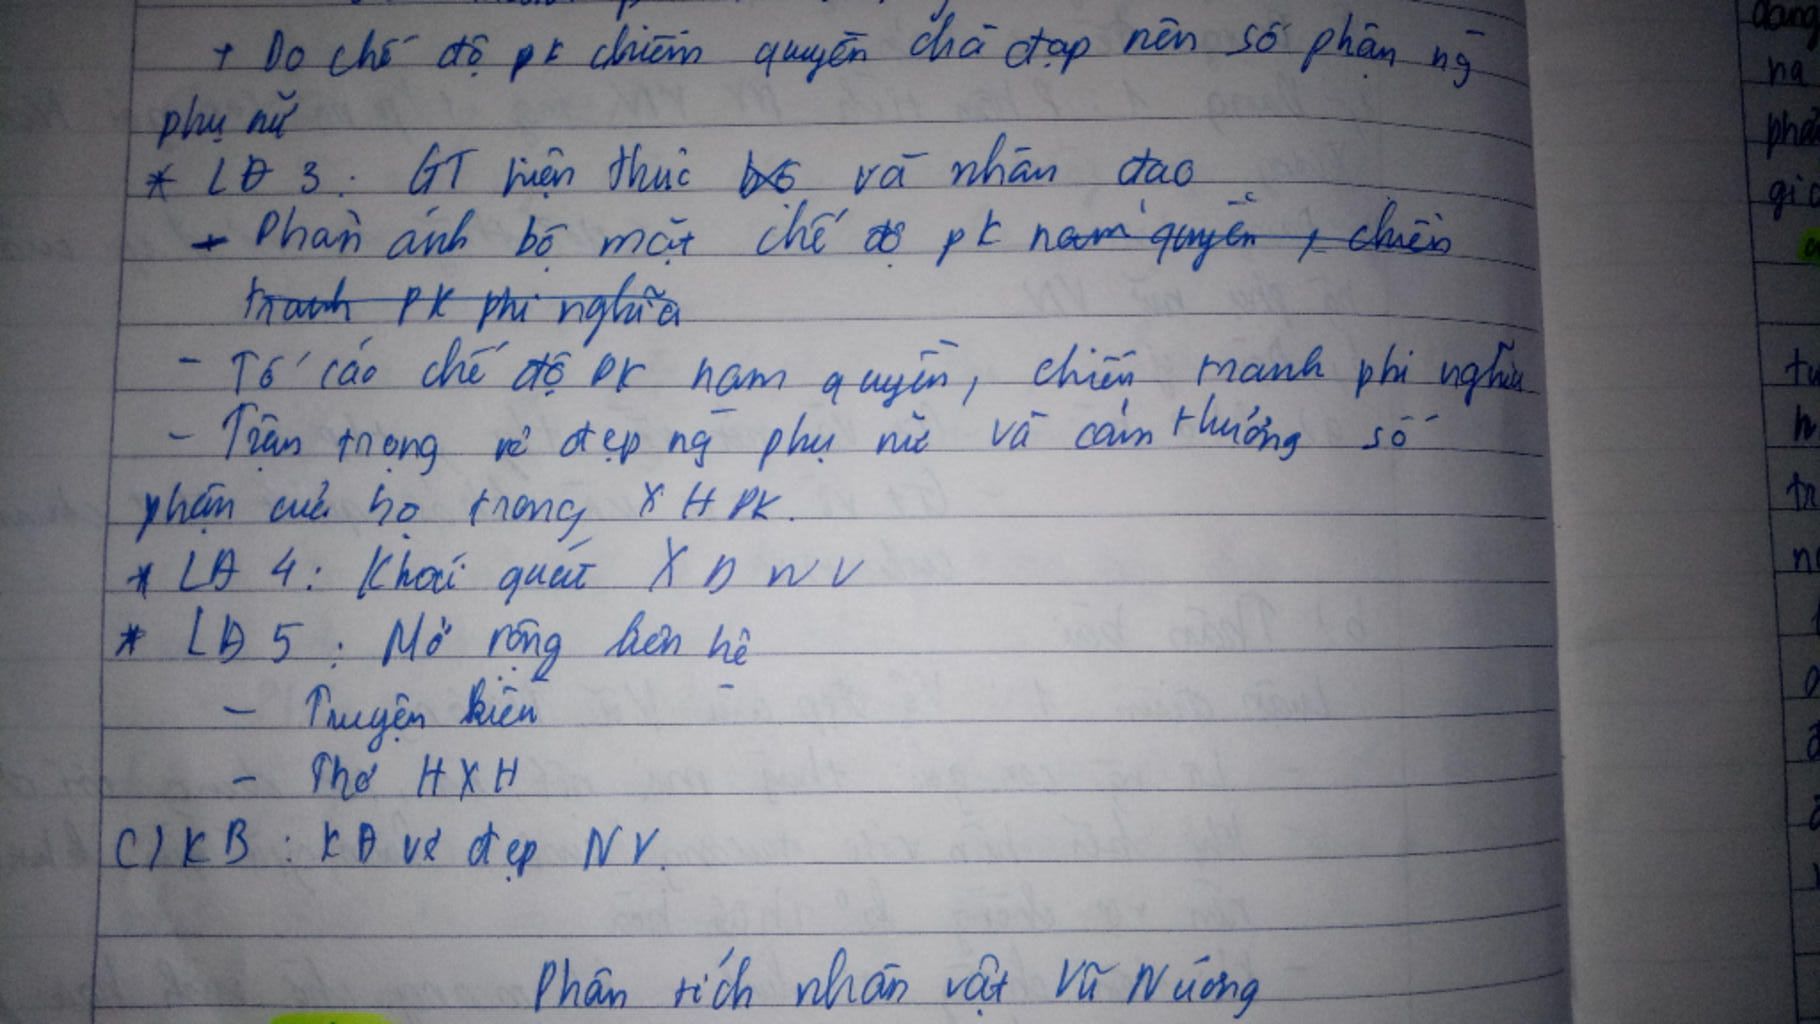 + Do chế độ pk chiếm quyền chà đạp nên số phận ng̃
phụ nữ
* LĐ 3: GT hiện thực và nhân đạo
+ Phản ánh bộ mặt chế độ pk nam quyền, chiến
tranh PK phi nghĩa
- Tố cáo chế độ PK nam quyền, chiến tranh phi nghĩa
- Trân trọng vẻ đẹp ng̃ phụ nữ và cảm thương số
phận của họ trong XHPK.
* LĐ 4: Khái quát XDNV
* LĐ 5: Mở rộng liên hệ
- Truyện kiều
- Thơ HXH
C) KB: KĐ vẻ đẹp NV.
Phân tích nhân vật Vũ Nương